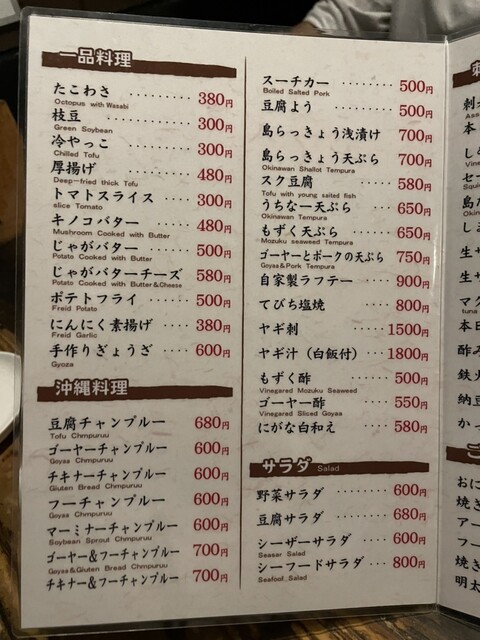 一品料理
たこわさ ･････････ 380円
Octopus with Wasabi
枝豆 ･････････ 300円
Green Soybean
冷やっこ ･････････ 300円
Chilled Tofu
厚揚げ ･････････ 480円
Deep-fried thick Tofu
トマトスライス ････ 300円
slice Tomato
キノコバター ････ 480円
Mushroom Cooked with Butter
じゃがバター ････ 500円
Patato Cooked with Butter
じゃがバターチーズ 580円
Patato Cooked with Butter&Cheese
ポテトフライ ････ 500円
Freid Potato
にんにく素揚げ ･･･ 380円
Freid Garlic
手作りぎょうざ ････ 600円
Gyoza
沖縄料理
豆腐チャンプルー 680円
Tofu Chmpuruu
ゴーヤーチャンプルー 600円
Goyaa Chmpuruu
チキナーチャンプルー 600円
Gluten Bread Chmpuruu
フーチャンプルー 600円
Goyaa Chmpuruu
マーミナーチャンプルー 600円
Soybean Sprout Chmpuruu
ゴーヤー&フーチャンプルー 700円
Goyaa&Gluten Bread Chmpuruu
チキナー&フーチャンプルー 700円
スーチカー ････････ 500円
Boiled Salted Pork
豆腐よう ････････ 500円
島らっきょう浅漬け 700円
島らっきょう天ぷら 700円
Okinawan Shallot Tempura
スク豆腐 ･･･････ 580円
Tofu with young salted fish
うちなー天ぷら ････ 650円
Okinawan Tempura
もずく天ぷら ････ 650円
Mozuku seaweed Tempura
ゴーヤーとポークの天ぷら 750円
Goyaa&Pork Tempura
自家製ラフテー ････ 900円
てびち塩焼 ････ 800円
ヤギ刺 ･････ 1500円
ヤギ汁(白飯付) ･･･ 1800円
もずく酢 ････････ 500円
Vinegared Mozuku Seaweed
ゴーヤー酢 ･･････ 550円
Vinegared Sliced Goyaa
にがな白和え ････ 580円
サラダ Salad
野菜サラダ ･･･････ 600円
豆腐サラダ ･･･････ 680円
シーザーサラダ ････ 600円
Seasar Salad
シーフードサラダ ････ 800円
Seafoof Salad